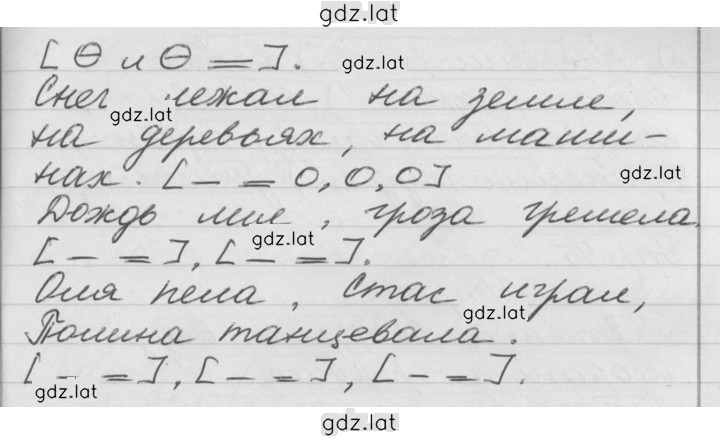 gdz.lat
[ ⊖ и ⊖ = ].
gdz.lat
Снег лежал на земле,
gdz.lat
на деревьях, на маши-
нах. [ – = О, О, О ]
gdz.lat
Дождь лил, гроза гремела.
gdz.lat
[ – = ], [ – = ].
Оля пела, Стас играл,
gdz.lat
Полина танцевала.
[ – = ], [ – = ], [ – = ].
gdz.lat
gdz.lat